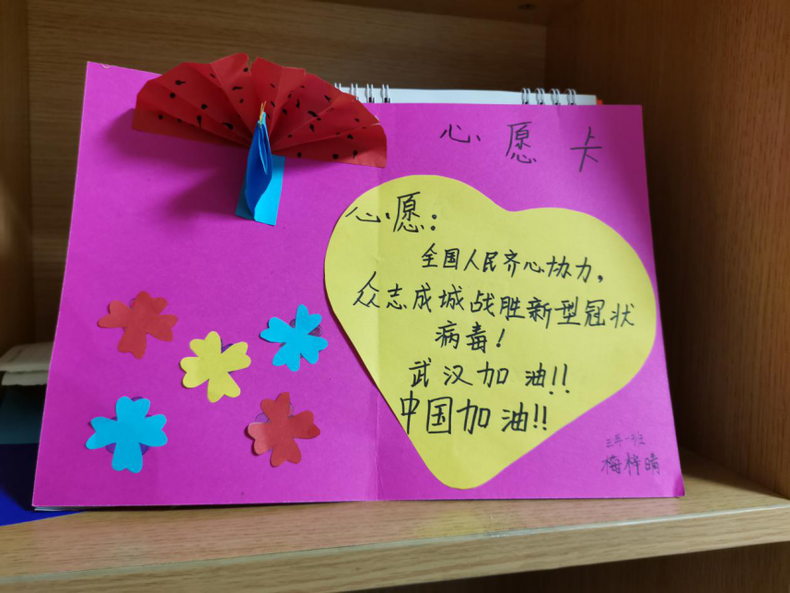 心愿卡
心愿：
全国人民齐心协力，
众志成城战胜新型冠状
病毒！
武汉加油!!
中国加油!!
三年一班
梅梓晴